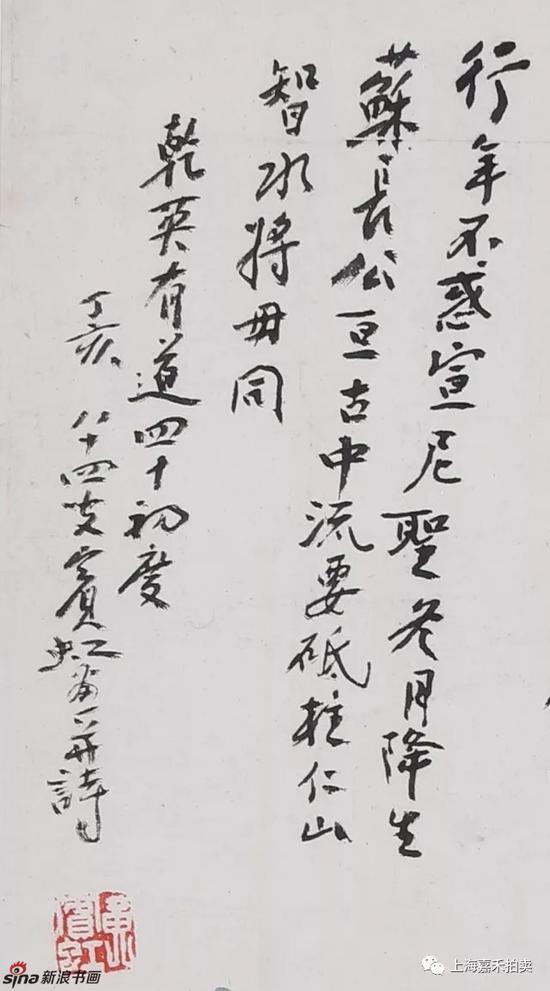 行年不惑宣尼聖冬月降生
蘇長公亘古中流要砥柱仁山
智水將毋同
乾英有道四十初度
丁亥八十四叟賓虹畫並詩
黃賓虹
sina新浪书画
上海嘉禾拍卖